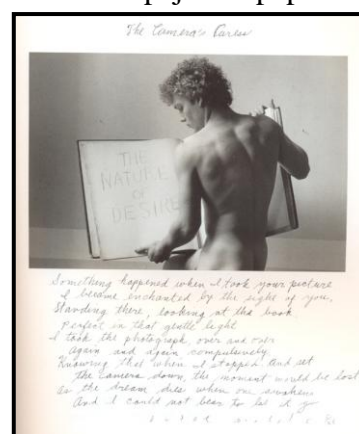 The Camera's Caress
THE
NATURE
OF
DESIRE
Something happened when I took your picture
I became enchanted by the sight of you,
Standing there, looking at the book
Perfect in that gentle light
I took the photograph, over and over
Again and again compulsively
Knowing that when I stopped and set
the camera down, the moment would be lost
As the dream dies when one awakens
And I could not bear to let it go